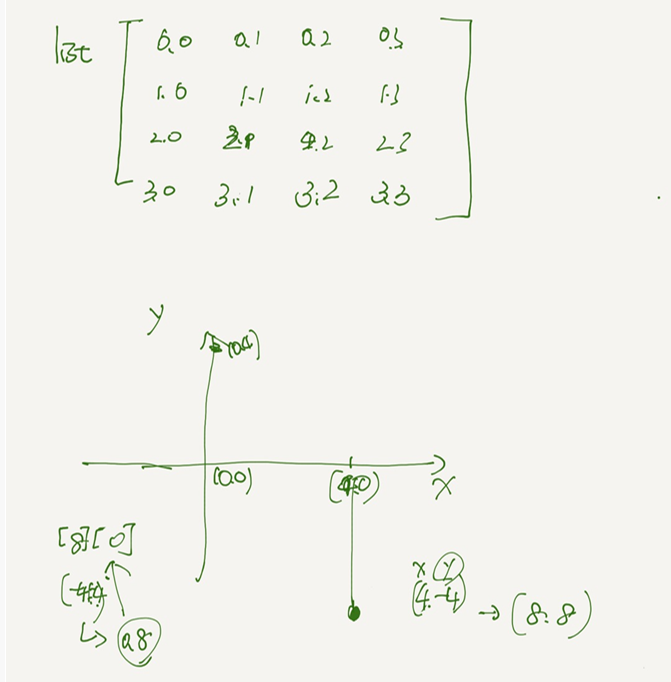 list
0,0 0,1 0,2 0,3
1.0 1-1 1.2 1-3
2.0 2.2 23
3,0 3.1 3:2 3,3
y
(0.4)
(0.0)
x
[8][0]
x y
(4.-4) → (8.8)
0.8